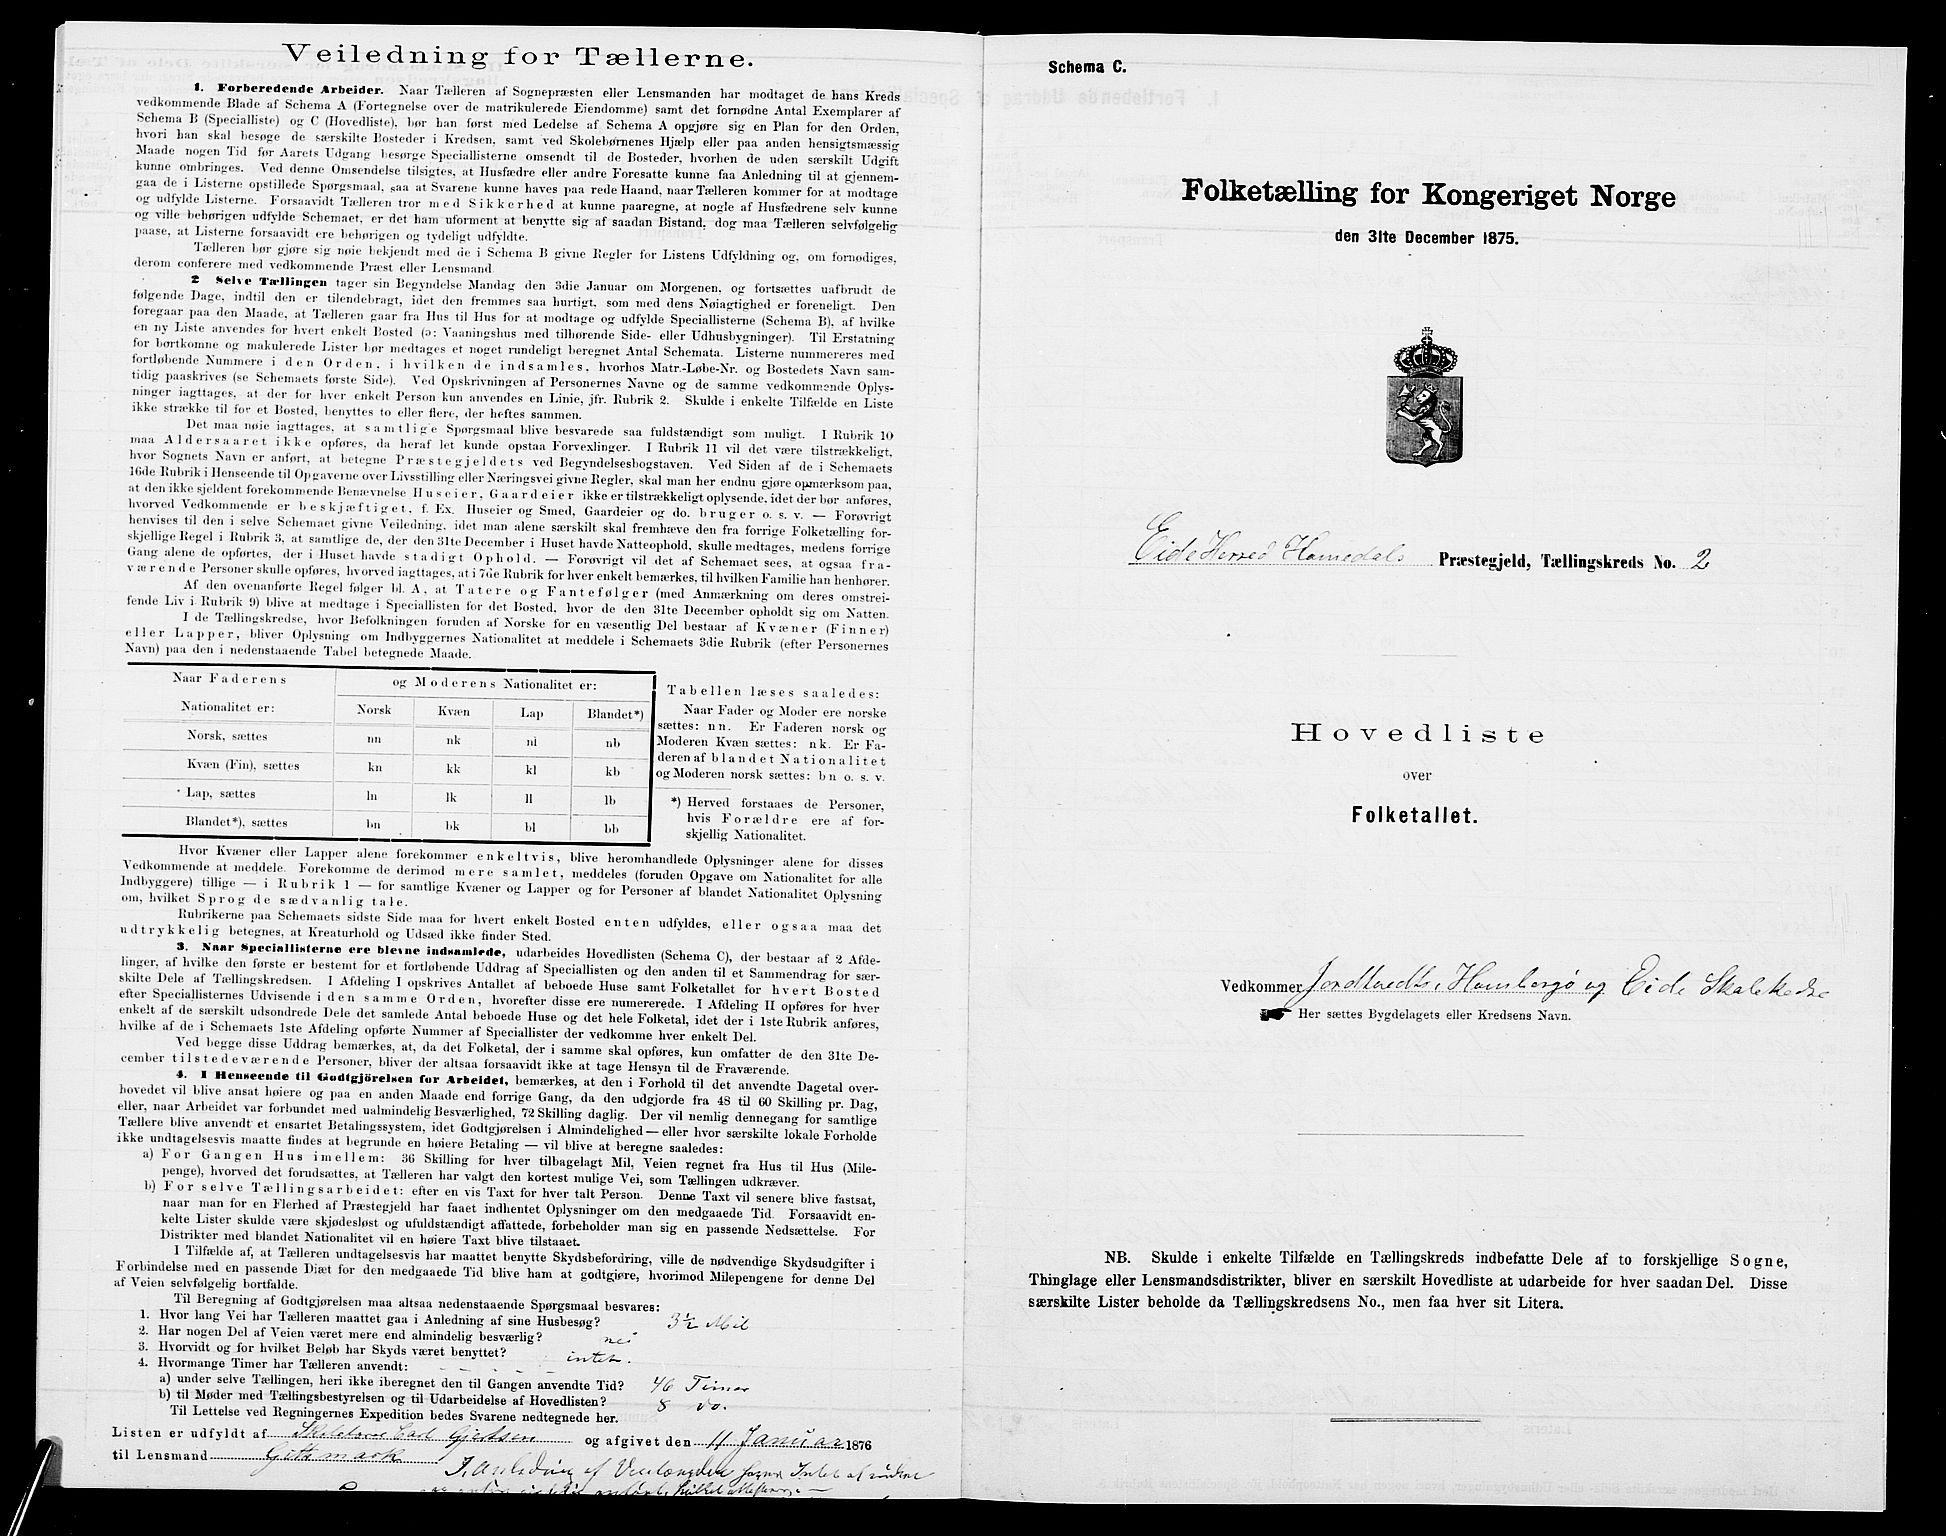 Veiledning for Tællerne.
1. Forberedende Arbeider. Naar Tælleren af Sognepræsten eller Lensmanden har modtaget de hans Kreds
vedkommende Blade af Schema A (Fortegnelse over de matrikulerede Eiendomme) samt det fornødne Antal Exemplarer af
Schema B (Specialliste) og C (Hovedliste), bør han først med Ledelse af Schema A opgjøre sig en Plan for den Orden,
hvori han skal besøge de særskilte Bosteder i Kredsen, samt ved Skolebørnenes Hjælp eller paa anden hensigtsmæssig
Maade nogen Tid før Aarets Udgang besørge Speciallisterne omsendt til de Bosteder, hvorhen de uden særskilt Udgift
kunne ombringes. Ved denne Omsendelse tilsigtes, at Husfædre eller andre Foresatte kunne faa Anledning til at gjennem-
gaa de i Listerne opstillede Spørgsmaal, saa at Svarene kunne haves paa rede Haand, naar Tælleren kommer for at modtage
og udfylde Listerne. Forsaavidt Tælleren tror med Sikkerhed at kunne paaregne, at nogle af Husfædrene selv kunne
og ville behørigen udfylde Schemaet, er det ham uforment at benytte sig af saadan Bistand, dog maa Tælleren selvfølgelig
paase, at Listerne forsaavidt ere behørigen og tydeligt udfyldte.
Tælleren bør gjøre sig nøie bekjendt med de i Schema B givne Regler for Listens Udfyldning og, om fornødiges,
derom conferere med vedkommende Præst eller Lensmand
2 Selve Tællingen tager sin Begyndelse Mandag den 3die Januar om Morgenen, og fortsættes uafbrudt de
følgende Dage, indtil den er tilendebragt, idet den fremmes saa hurtigt, som med dens Nøiagtighed er foreneligt. Den
foregaar paa den Maade, at Tælleren gaar fra Hus til Hus for at modtage og udfylde Speciallisterne (Schema B), af hvilke
en ny Liste anvendes for hvert enkelt Bosted (ɔ: Vaaningshus med tilhørende Side- eller Udhusbygninger). Til Erstatning
for bortkomne og makulerede Lister bør medtages et noget rundeligt beregnet Antal Schemata. Listerne nummereres med
fortløbende Nummere i den Orden, i hvilken de indsamles, hvorhos Matr.-Løbe-Nr. og Bostedets Navn sam-
tidig paaskrives (se Schemaets første Side). Ved Opskrivningen af Personernes Navne og de samme vedkommende Oplys-
ninger iagttages, at der for hver enkelt Person kun anvendes en Linie, jfr. Rubrik 2. Skulde i enkelte Tilfælde en Liste
ikke strække til for et Bosted, benyttes to eller flere, der heftes sammen.
Det maa nøie iagttages, at samtlige Spørgsmaal blive besvarede saa fuldstændigt som muligt. I Rubrik 10
maa Aldersaaret ikke opføres, da heraf let kunde opstaa Forvexlinger. I Rubrik 11 vil det være tilstrækkeligt,
hvor Sognets Navn er anført, at betegne Præstegjeldets ved Begyndelsesbogstaven. Ved Siden af de i Schemaets
16de Rubrik i Henseende til Opgaverne over Livsstilling eller Næringsvei givne Regler, skal man her endnu gjøre opmærksom paa,
at den ikke sjeldent forekommende Benævnelse Huseier, Gaardeier ikke er tilstrækkeligt oplysende, idet der bør anføres,
hvorved Vedkommende er beskjæftiget, f. Ex. Huseier og Smed, Gaardeier og do. bruger o. s. v. — Forøvrigt
henvises til den i selve Schemaet givne Veiledning, idet man alene særskilt skal fremhæve den fra forrige Folketælling for-
skjellige Regel i Rubrik 3, at samtlige de, der den 31te December i Huset havde Natteophold, skulle medtages, medens forrige
Gang alene de opførtes, der i Huset havde stadigt Ophold. — Forøvrigt vil det af Schemaet sees, at ogsaa fra-
værende Personer skulle opføres, hvorved iagttages, at i 7de Rubrik for hver enkelt bemærkes, til hvilken Familie han henhører.
Af den ovenanførte Regel følger bl. A, at Tatere og Fantefølger (med Anmærkning om deres omstrei-
fende Liv i Rubrik 9) blive at medtage i Speciallisten for det Bosted, hvor de den 31te December opholdt sig om Natten.
I de Tællingskredse, hvor Befolkningen foruden af Norske for en væsentlig Del bestaar af Kvæner (Finner)
eller Lapper, bliver Oplysning om Indbyggernes Nationalitet at meddele i Schemaets 3die Rubrik (efter Personernes
Navn) paa den i nedenstaaende Tabel betegnede Maade.
Naar Faderens og Moderens Nationalitet er:
Nationalitet er: Norsk Kvæn Lap Blandet*)
Norsk, sættes nn nk nl nb
Kvæn (Fin), sættes kn kk kl kb
Lap, sættes ln lk ll lb
Blandet*), sættes bn bk bl bb
Tabellen læses saaledes:
Naar Fader og Moder ere norske
sættes: nn. Er Faderen norsk og
Moderen Kvæn sættes: nk. Er Fa-
deren af blandet Nationalitet
og Moderen norsk sættes: bn o. s. v.
*) Herved forstaaes de Personer,
hvis Forældre ere af for-
skjellig Nationalitet.
Hvor Kvæner eller Lapper alene forekommer enkeltvis, blive heromhandlede Oplysninger alene for disses
Vedkommende at meddele. Forekomme de derimod mere samlet, meddeles (foruden Opgave om Nationalitet for alle
Indbyggere) tillige — i Rubrik 1 — for samtlige Kvæner og Lapper og for Personer af blandet Nationalitet Oplysning
om, hvilket Sprog de sædvanlig tale.
Rubrikerne paa Schemaets sidste Side maa for hvert enkelt Bosted enten udfyldes, eller ogsaa maa det
udtrykkelig betegnes, at Kreaturhold og Udsæd ikke finder Sted.
3. Naar Speciallisterne ere blevne indsamlede, udarbeides Hovedlisten (Schema C), der bestaar af 2 Afde-
linger, af hvilke den første er bestemt for et fortløbende Uddrag af Speciallisten og den anden til et Sammendrag for sær-
skilte Dele af Tællingskredsen. I Afdeling I opskrives Antallet af beboede Huse samt Folketallet for hvert Bosted
efter Speciallisternes Udvisende i den samme Orden, hvorefter disse ere numererede. I Afdeling II opføres for hver
enkelt af de særskilt udsondrede Dele det samlede Antal beboede Huse og det hele Folketal, idet der i 1ste Rubrik anføres,
hvilke af de i Schemaets 1ste Afdeling opførte Nummer af Speciallister der vedkomme hver enkelt Del.
Ved begge disse Uddrag bemærkes, at, da det Folketal, der i samme skal opføres, kun omfatter de den 31te De-
cember tilstedeværende Personer, bliver der altsaa forsaavidt ikke at tage Hensyn til de Fraværende.
4. I Henseende til Godtgjörelsen for Arbeidet, bemærkes, at den i Forhold til det anvendte Dagetal over-
hovedet vil blive ansat høiere og paa en anden Maade end forrige Gang, da den udgjorde fra 48 til 60 Skilling pr. Dag,
eller, naar Arbeidet var forbundet med ualmindelig Besværlighed, 72 Skilling daglig. Der vil nemlig dennegang for samtlige
Tællere blive anvendt et ensartet Betalingssystem, idet Godtgjörelsen i Almindelighed — eller hvor særskilte lokale Forholde
ikke undtagelsesvis maatte findes at begrunde en høiere Betaling — vil blive at beregne saaledes:
a) For Gangen Hus imellem: 36 Skilling for hver tilbagelagt Mil, Veien regnet fra Hus til Hus (Mile-
penge), hvorved det forudsættes, at Tælleren har valgt den kortest mulige Vei, som Tællingen udkræver.
b) For selve Tællingsarbeidet: efter en vis Taxt for hver talt Person. Denne Taxt vil senere blive fastsat,
naar man for en Flerhed af Præstegjeld har faaet indhentet Oplysninger om den medgaaede Tid. Forsaavidt en-
kelte Lister skulde være skjødesløst og ufuldstændigt affattede, forbeholder man sig en passende Nedsættelse. For
Distrikter med blandet Nationalitet vil en høiere Taxt blive tilstaaet.
I Tilfælde af, at Tælleren undtagelsesvis har maattet benytte Skydsbefordring, ville de nødvendige Skydsudgifter i
Forbindelse med en passende Diæt for den medgaaede Tid blive ham at godtgjøre, hvorimod Milepengene for denne Del
af Veien selvfølgelig bortfalde.
Til Beregning af Godtgjørelsen maa altsaa nedenstaaende Spørgsmaal besvares:
1. Hvor lang Vei har Tælleren maattet gaa i Anledning af sine Husbesøg? 3½ Mil
2. Har nogen Del af Veien været mere end almindelig besværlig? nei
3. Hvorvidt og for hvilket Beløb har Skyds været benyttet? intet.
4. Hvormange Timer har Tælleren anvendt:
a) under selve Tællingen, heri ikke iberegnet den til Gangen anvendte Tid? 46 Timer
b) til Møder med Tællingsbestyrelsen og til Udarbeidelse af Hovedlisten? 8 do.
Til Lettelse ved Regningernes Expedition bedes Svarene nedtegnede her.
Listen er udfyldt af Skolelærer Carl Gjertsen og afgivet den 11 Januar 1876
til Lensmand Gittmark
Schema C.
Folketælling for Kongeriget Norge
den 31te December 1875.
Eide Herred Homedals Præstegjeld, Tællingskreds No. 2
Hovedliste
over
Folketallet.
Vedkommer Jordtvedts, Homborgø og Eide Skolekreds
Her sættes Bygdelagets eller Kredsens Navn.
NB. Skulde i enkelte Tilfælde en Tællingskreds indbefatte Dele af to forskjellige Sogne,
Thinglage eller Lensmandsdistrikter, bliver en særskilt Hovedliste at udarbeide for hver saadan Del. Disse
særskilte Lister beholde da Tællingskredsens No., men faa hver sit Litera.